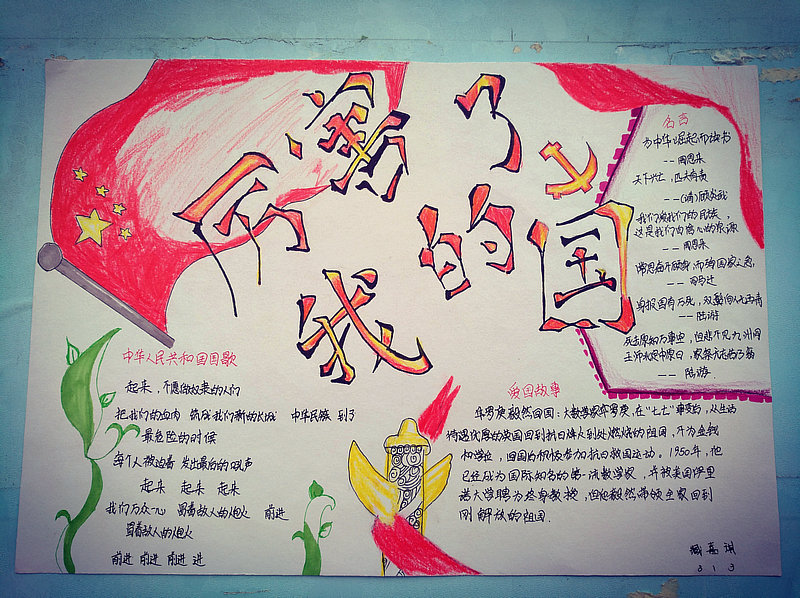 厉害了
我的国
名言
为中华崛起而读书
-- 周恩来
天下兴亡，匹夫有责
-- (清)顾炎武
我们爱我们的民族，
这是我们自信心的源泉
-- 周恩来
常思奋不顾身，而殉国家之急，
-- 司马迁
身报国有万死，双鬓向人无再青
-- 陆游
死去原知万事空，但悲不见九州同
王师北定中原日，家祭无忘告乃翁
-- 陆游
中华人民共和国国歌
起来，不愿做奴隶的人们
把我们的血肉 筑成我们新的长城 中华民族 到了
最危险的时候
每个人被迫着 发出最后的吼声
起来 起来 起来
我们万众一心 冒着敌人的炮火 前进
冒着敌人的炮火
前进 前进 前进 进
爱国故事
华罗庚毅然回国：大数学家华罗庚，在"七七"事变后，从生活
待遇优厚的英国回到抗日烽火到处燃烧的祖国，不为金钱
和学位，回国为积极参加抗日救国运动。1950年，他
已经成为国际知名的第一流数学家，并被美国伊里
诺大学聘为终身教授，但他毅然带领全家回到
刚解放的祖国.
臧嘉琪
3 1 3